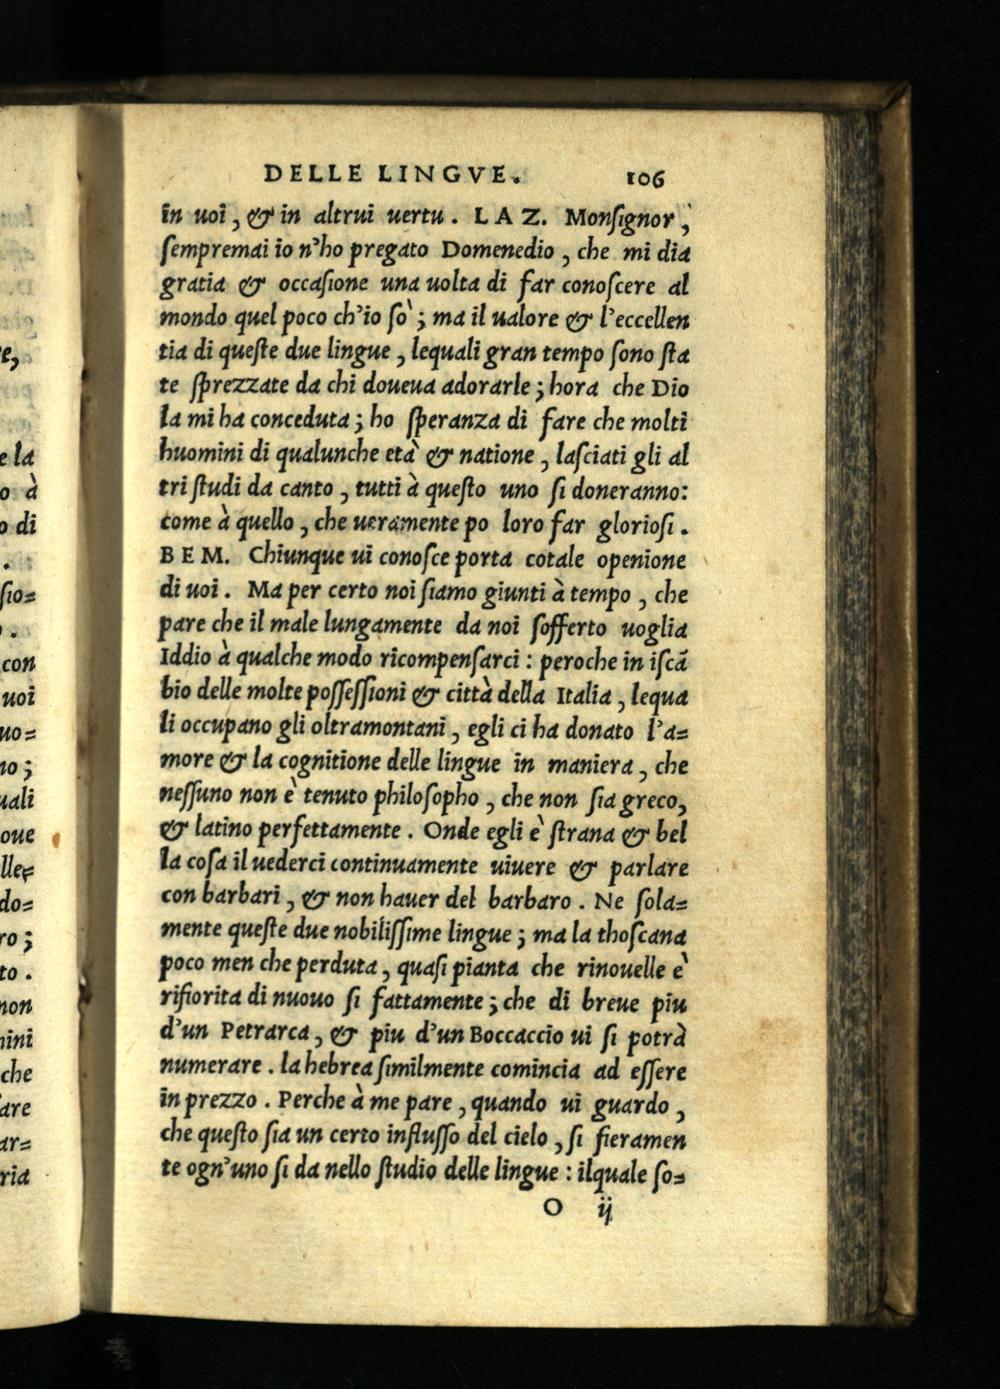 DELLE LINGVE. 106
in uoi, & in altrui uertu. LAZ. Monſignor,
ſempremai io n'ho pregato Domenedio, che mi dia
gratia & occaſione una uolta di far conoſcere al
mondo quel poco ch'io ſò; ma il ualore & l'eccellen
tia di queſte due lingue, lequali gran tempo ſono ſta
te ſprezzate da chi doueua adorarle; hora che Dio
la mi ha conceduta; ho ſperanza di fare che molti
huomini di qualunche età & natione, laſciati gli al
tri ſtudi da canto, tutti à queſto uno ſi doneranno:
come à quello, che ueramente po loro far glorioſi.
BEM. Chiunque ui conoſce porta cotale openione
di uoi. Ma per certo noi ſiamo giunti à tempo, che
pare che il male lungamente da noi ſofferto uoglia
Iddio à qualche modo ricompenſarci: peroche in iſcã
bio delle molte poſſeſſioni & città della Italia, lequa
li occupano gli oltramontani, egli ci ha donato l'a=
more & la cognitione delle lingue in maniera, che
neſſuno non è tenuto philoſopho, che non ſia greco,
& latino perfettamente. Onde egli è ſtrana & bel
la coſa il uederci continuamente uiuere & parlare
con barbari, & non hauer del barbaro. Ne ſola=
mente queſte due nobiliſſime lingue; ma la thoſcana
poco men che perduta, quaſi pianta che rinouelle è
rifiorita di nuouo ſi fattamente; che di breue piu
d'un Petrarca, & piu d'un Boccaccio ui ſi potrà
numerare. la hebrea ſimilmente comincia ad eſſere
in prezzo. Perche à me pare, quando ui guardo,
che queſto ſia un certo influſſo del cielo, ſi fieramen
te ogn'uno ſi da nello ſtudio delle lingue: ilquale ſo=
O ij